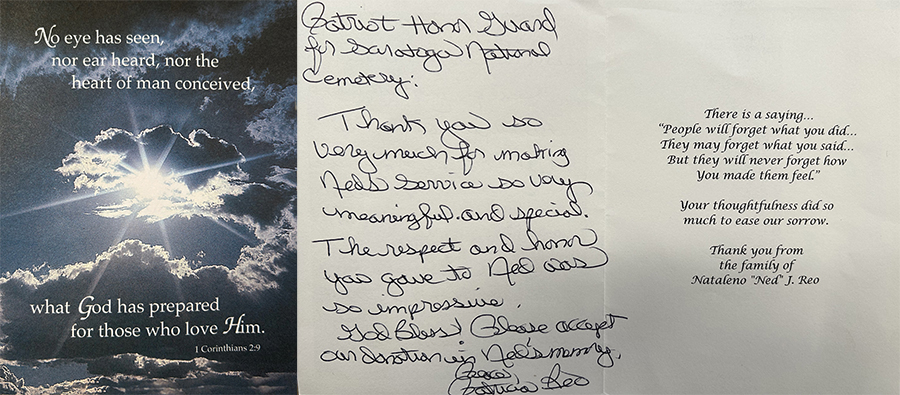 No eye has seen,
nor ear heard, nor the
heart of man conceived,
what God has prepared
for those who love Him.
1 Corinthians 2:9
Patriot Honor Guard
for Saratoga National
Cemetery:
Thank you so
very much for making
Ned's Service so very
meaningful and special.
The respect and honor
you gave to Ned was
so impressive.
God Bless! Please accept
our donation in Ned's memory.
Patricia Reo
There is a saying...
"People will forget what you did...
They may forget what you said...
But they will never forget how
You made them feel."
Your thoughtfulness did so
much to ease our sorrow.
Thank you from
the family of
Nataleno "Ned" J. Reo